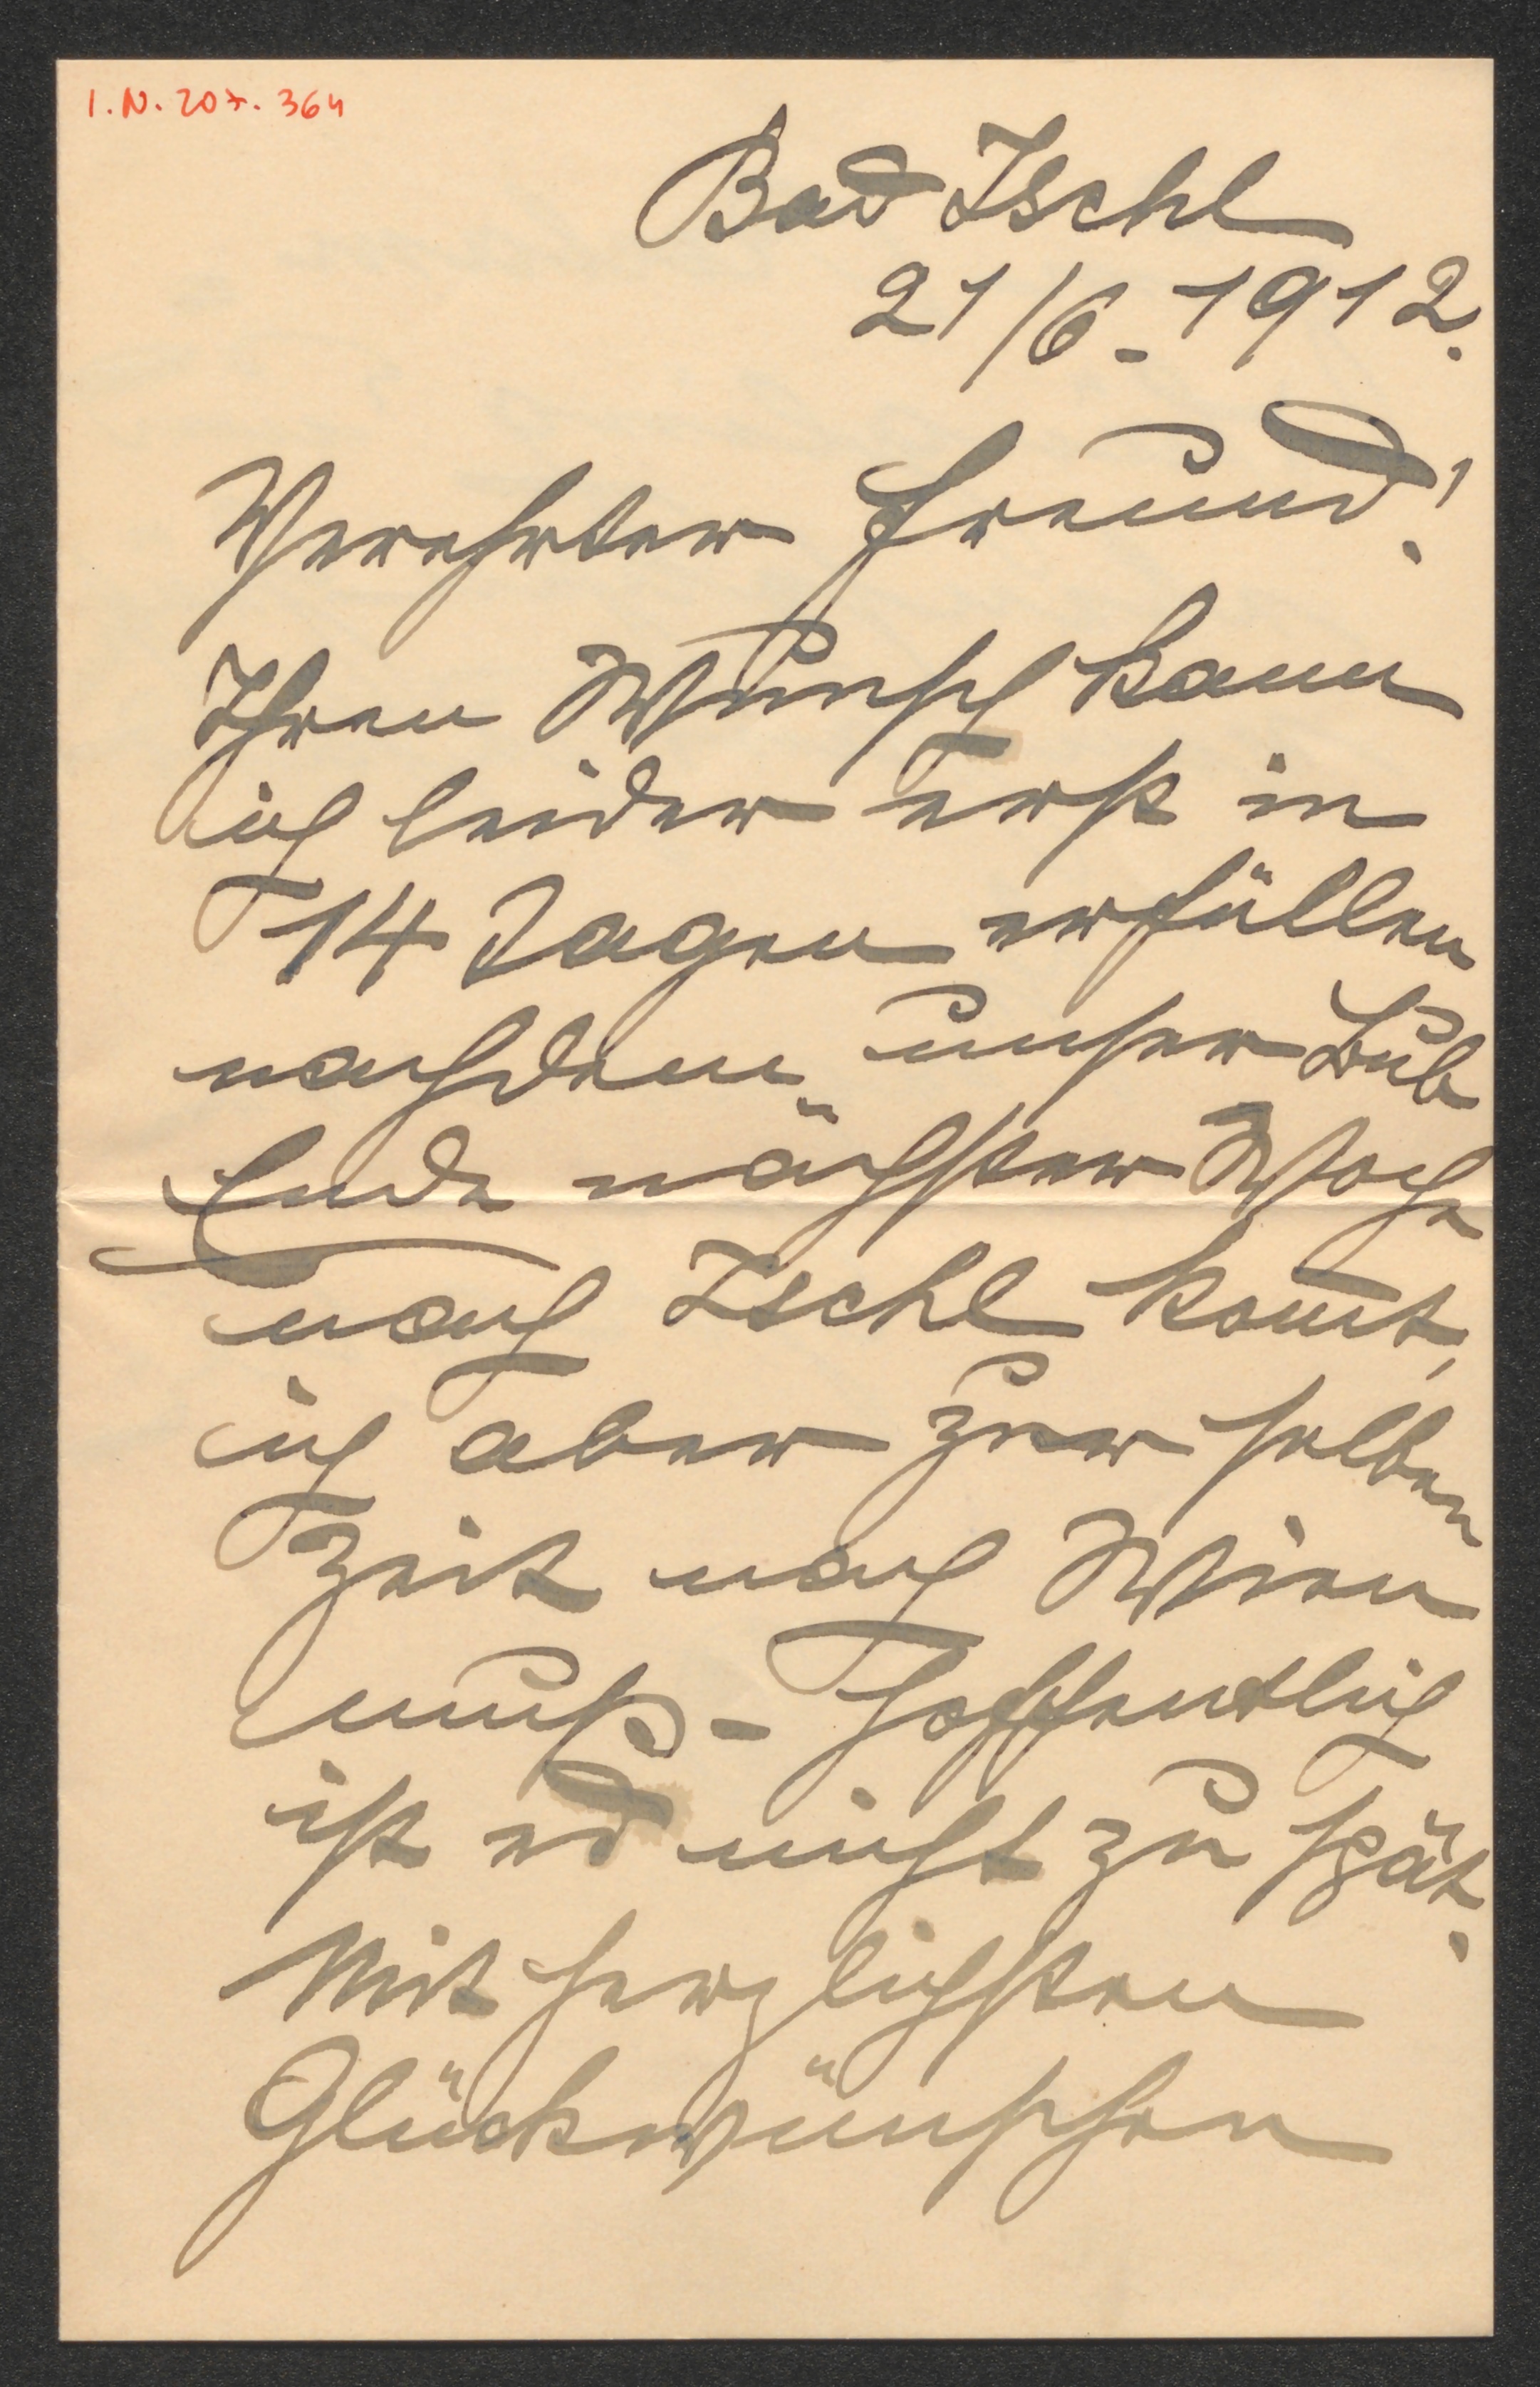 I.N. 207.364
Bad Ischl
21/6 - 1912.
Verehrter Freund!
Ihren Wunsch kann
ich leider erst in
14 Tagen erfüllen
nachdem unser Bub
Ende nächster Woche
nach Ischl kom̅t,
ich aber zur selben
Zeit nach Wien
muß - Hoffentlich
ist es nicht zu spät.
Mit herzlichsten
Glückwünschen